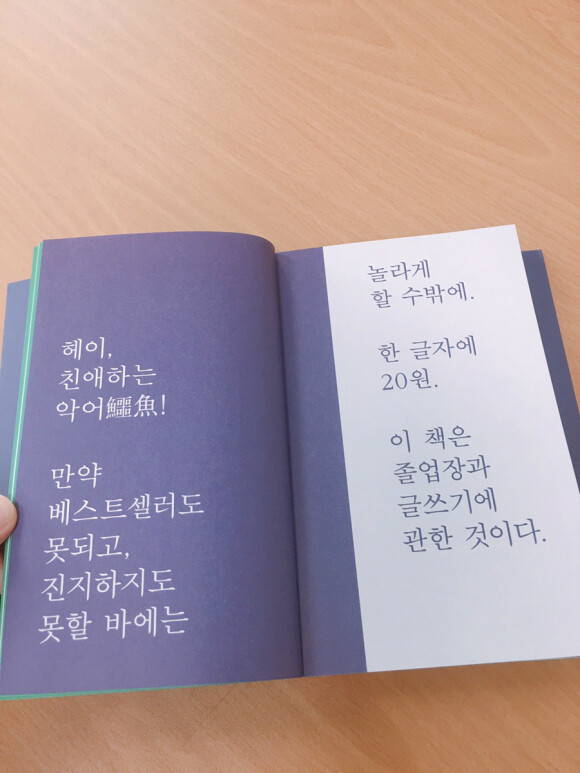 헤이,
친애하는
악어鰐魚!
만약
베스트셀러도
못되고,
진지하지도
못할 바에는
놀라게
할 수밖에.
한 글자에
20원.
이 책은
졸업장과
글쓰기에
관한 것이다.